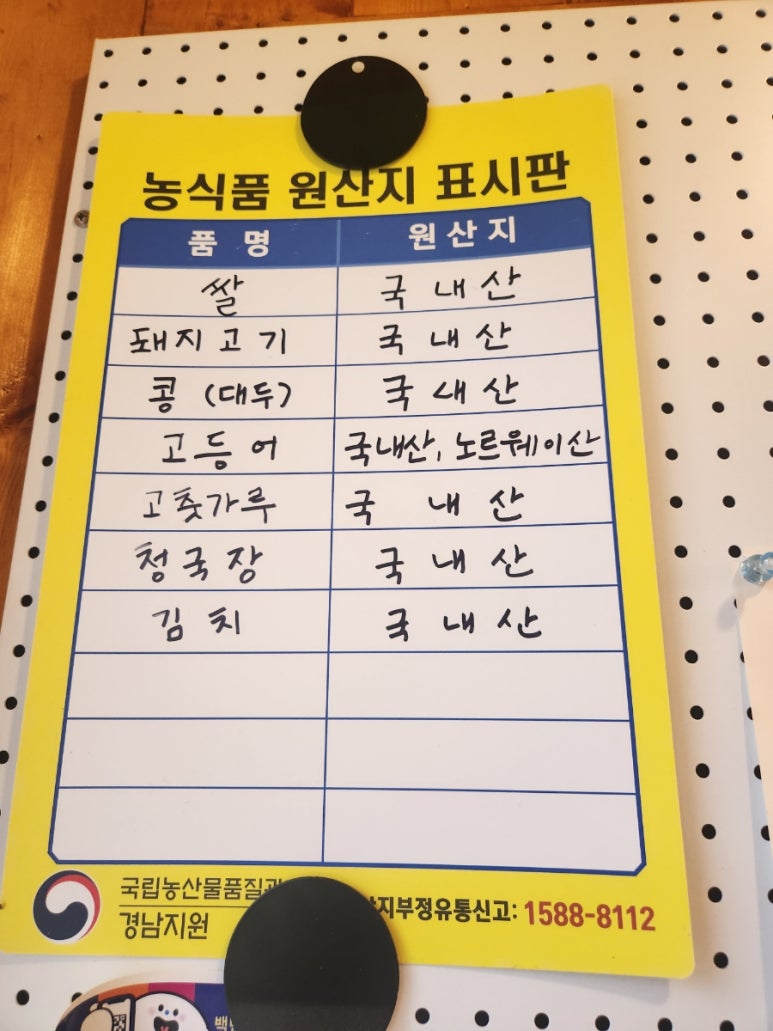 농식품 원산지 표시판
품 명 원 산 지
쌀 국 내 산
돼지고기 국 내 산
콩 (대두) 국 내 산
고등어 국내산, 노르웨이산
고춧가루 국 내 산
청국장 국 내 산
김치 국 내 산
국립농산물품질관
경남지원
산지부정유통신고: 1588-8112